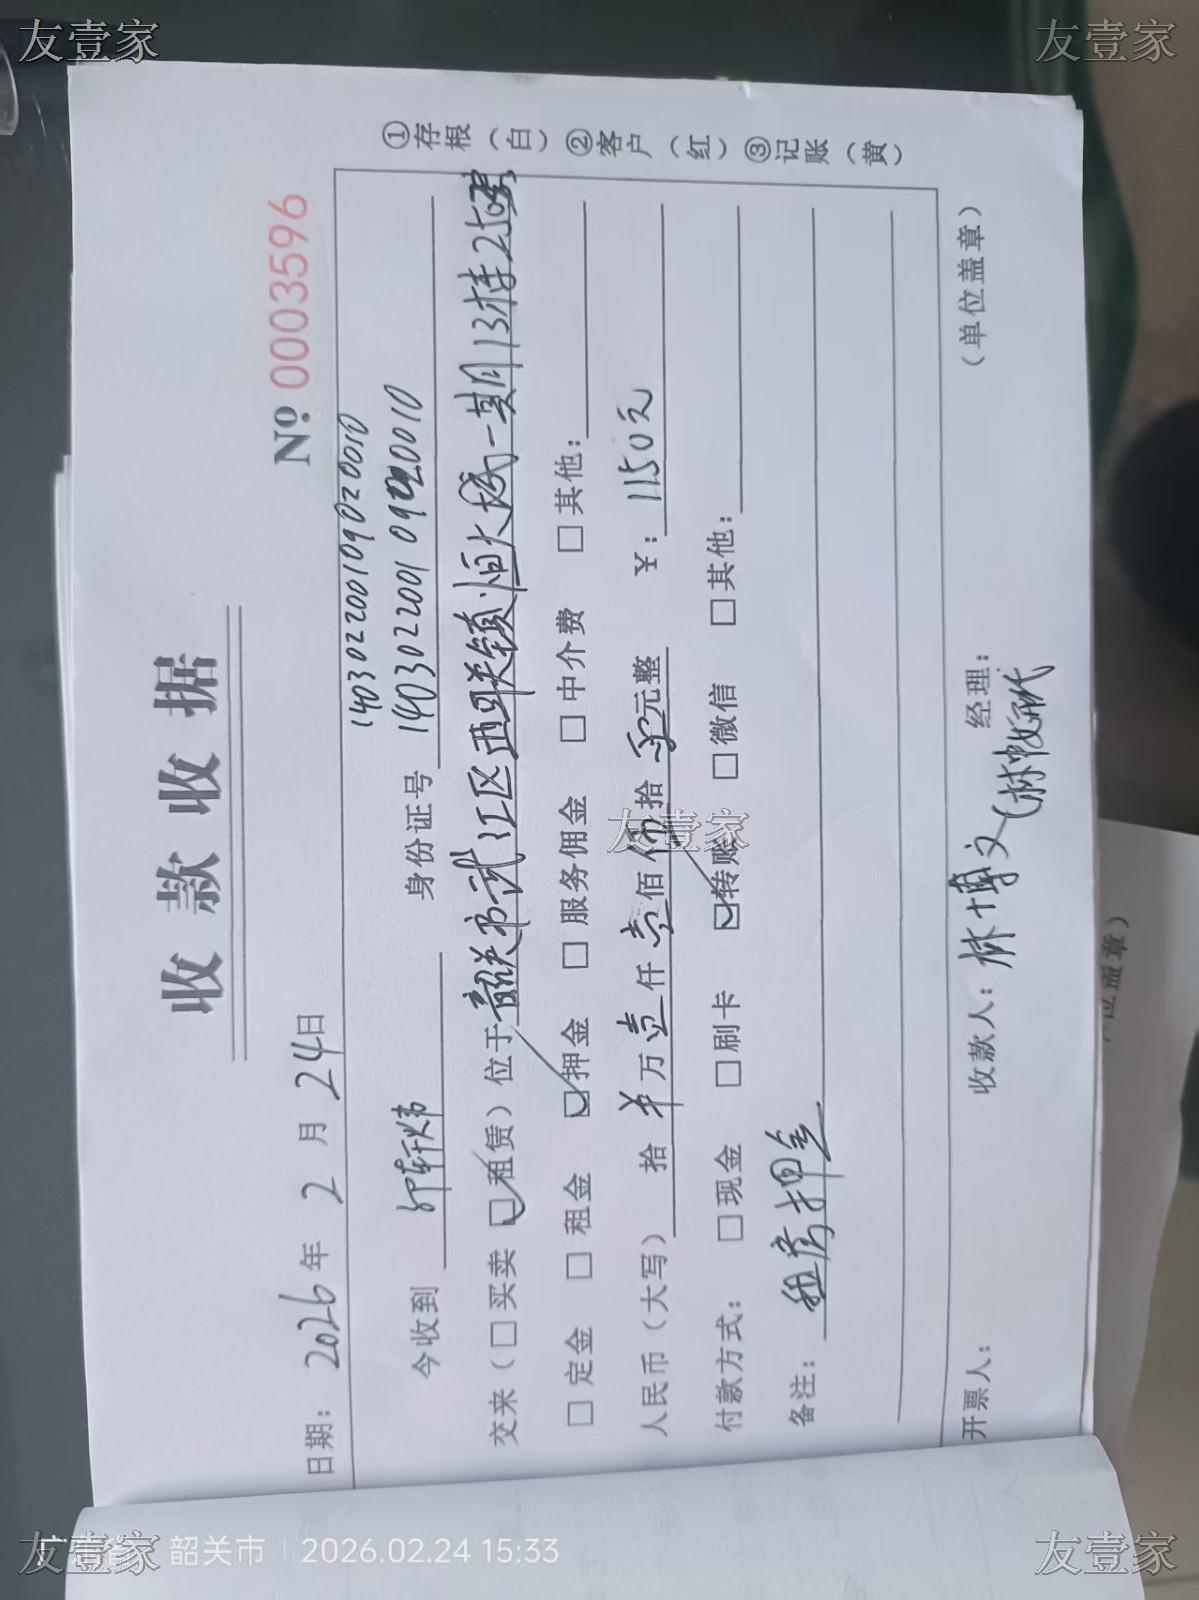 收款收据
№ 0003596
日期： 2026 年 2 月 24 日
140302200109020010
今收到 身份证号 140302200109020010
交来（□买卖 ☑租赁）位于韶关市武江区西联镇恒大城一期月13栋250
□定金 □租金 ☑押金 □服务佣金 □中介费 □其他：
人民币（大写） 拾 万壹仟壹佰伍拾元整 ¥：1150元
付款方式： □现金 □刷卡 ☑转账 □微信 □其他：
备注： 租房押金
开票人： 收款人：林博文 经理： （单位盖章）
①存根（白）②客户（红）③记账（黄）
位盖章）
韶关市 2026.02.24 15:33
友壹家
友壹家
友壹家
友壹家
友壹家